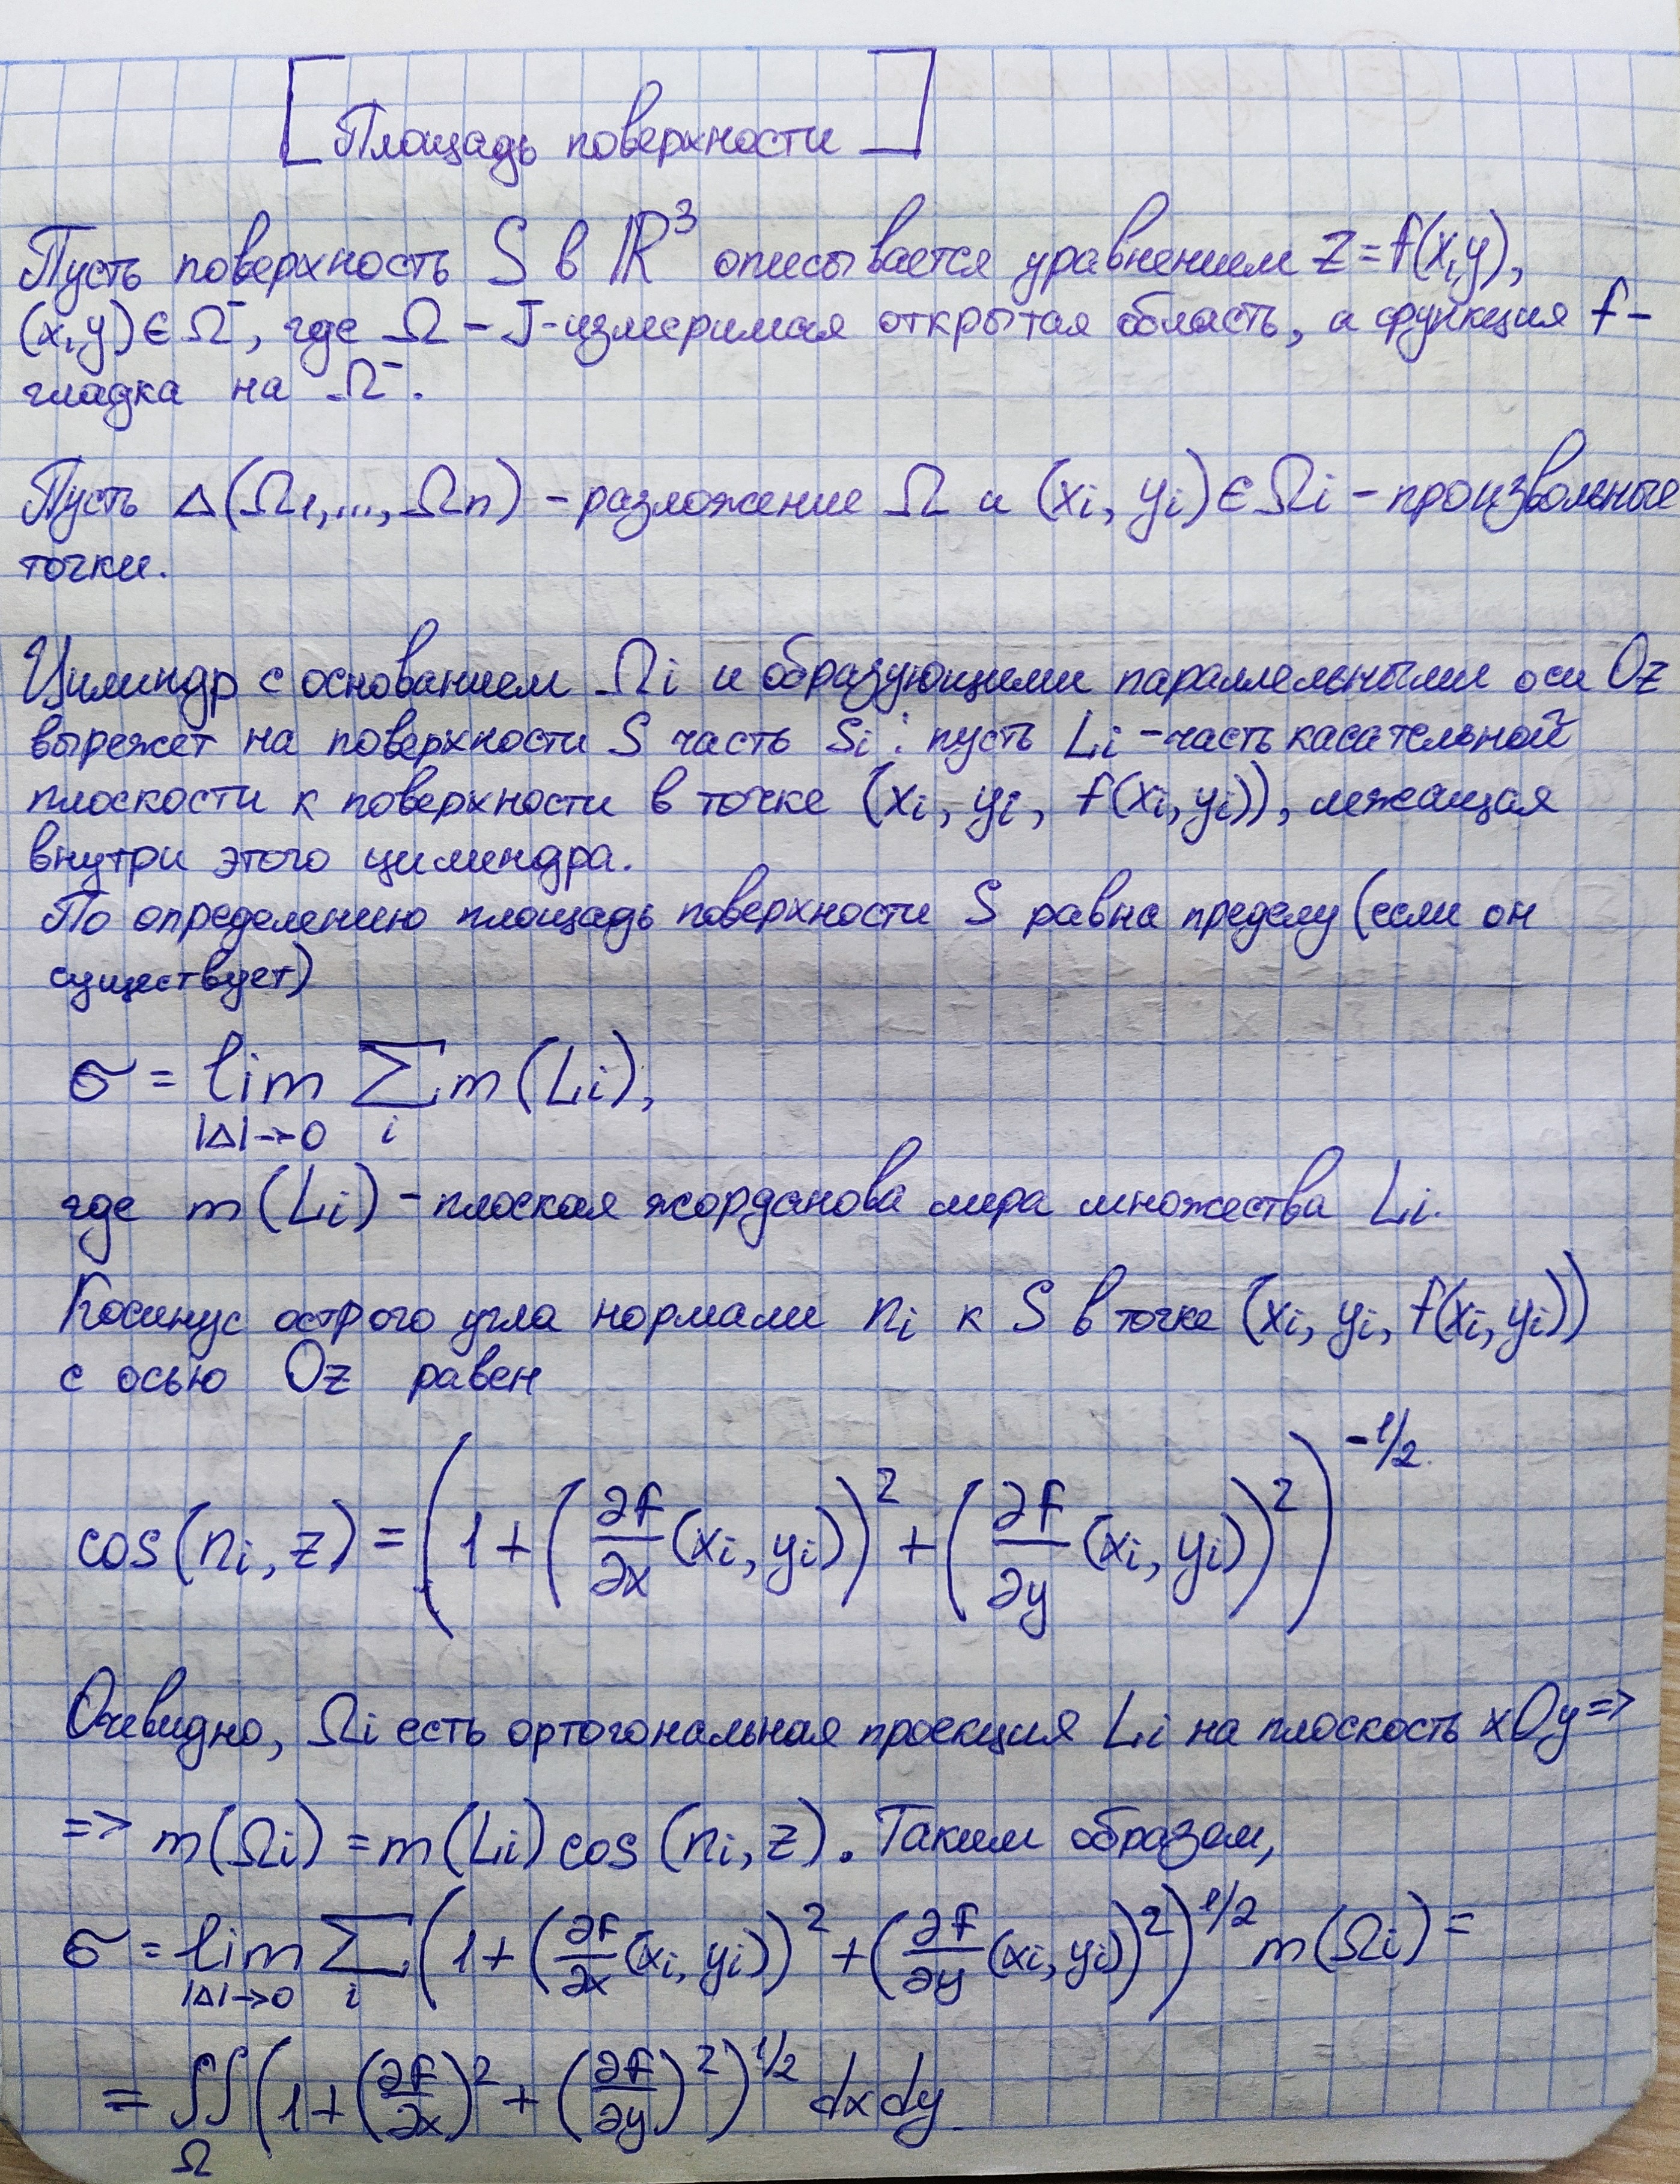 [Площадь поверхности]
Пусть поверхность S в ℝ³ описывается уравнением z=f(x,y),
(x,y)∈Ω̄, где Ω – J-измеримая открытая область, а функция f –
гладка на Ω̄.
Пусть Δ(Ω₁,...,Ωn) – разложение Ω и (xi, yi)∈Ωi – произвольные
точки.
Цилиндр с основанием Ωi и образующими параллельными оси Oz
вырежет на поверхности S часть Si; пусть Li – часть касательной
плоскости к поверхности в точке (xi, yi, f(xi, yi)), лежащая
внутри этого цилиндра.
По определению площадь поверхности S равна пределу (если он
существует)
σ = lim_{|Δ|→0} Σ_i m(Li),
где m(Li) – плоская жорданова мера множества Li.
Косинус острого угла нормали ni к S в точке (xi, yi, f(xi, yi))
с осью Oz равен
cos(ni, z) = (1 + (∂f/∂x (xi, yi))² + (∂f/∂y (xi, yi))²)^{-1/2}.
Очевидно, Ωi есть ортогональная проекция Li на плоскость xOy =>
=> m(Ωi) = m(Li) cos(ni, z). Таким образом,
σ = lim_{|Δ|→0} Σ_i (1 + (∂f/∂x (xi, yi))² + (∂f/∂y (xi, yi))²)^{1/2} m(Ωi) =
= ∬_Ω (1 + (∂f/∂x)² + (∂f/∂y)²)^{1/2} dxdy